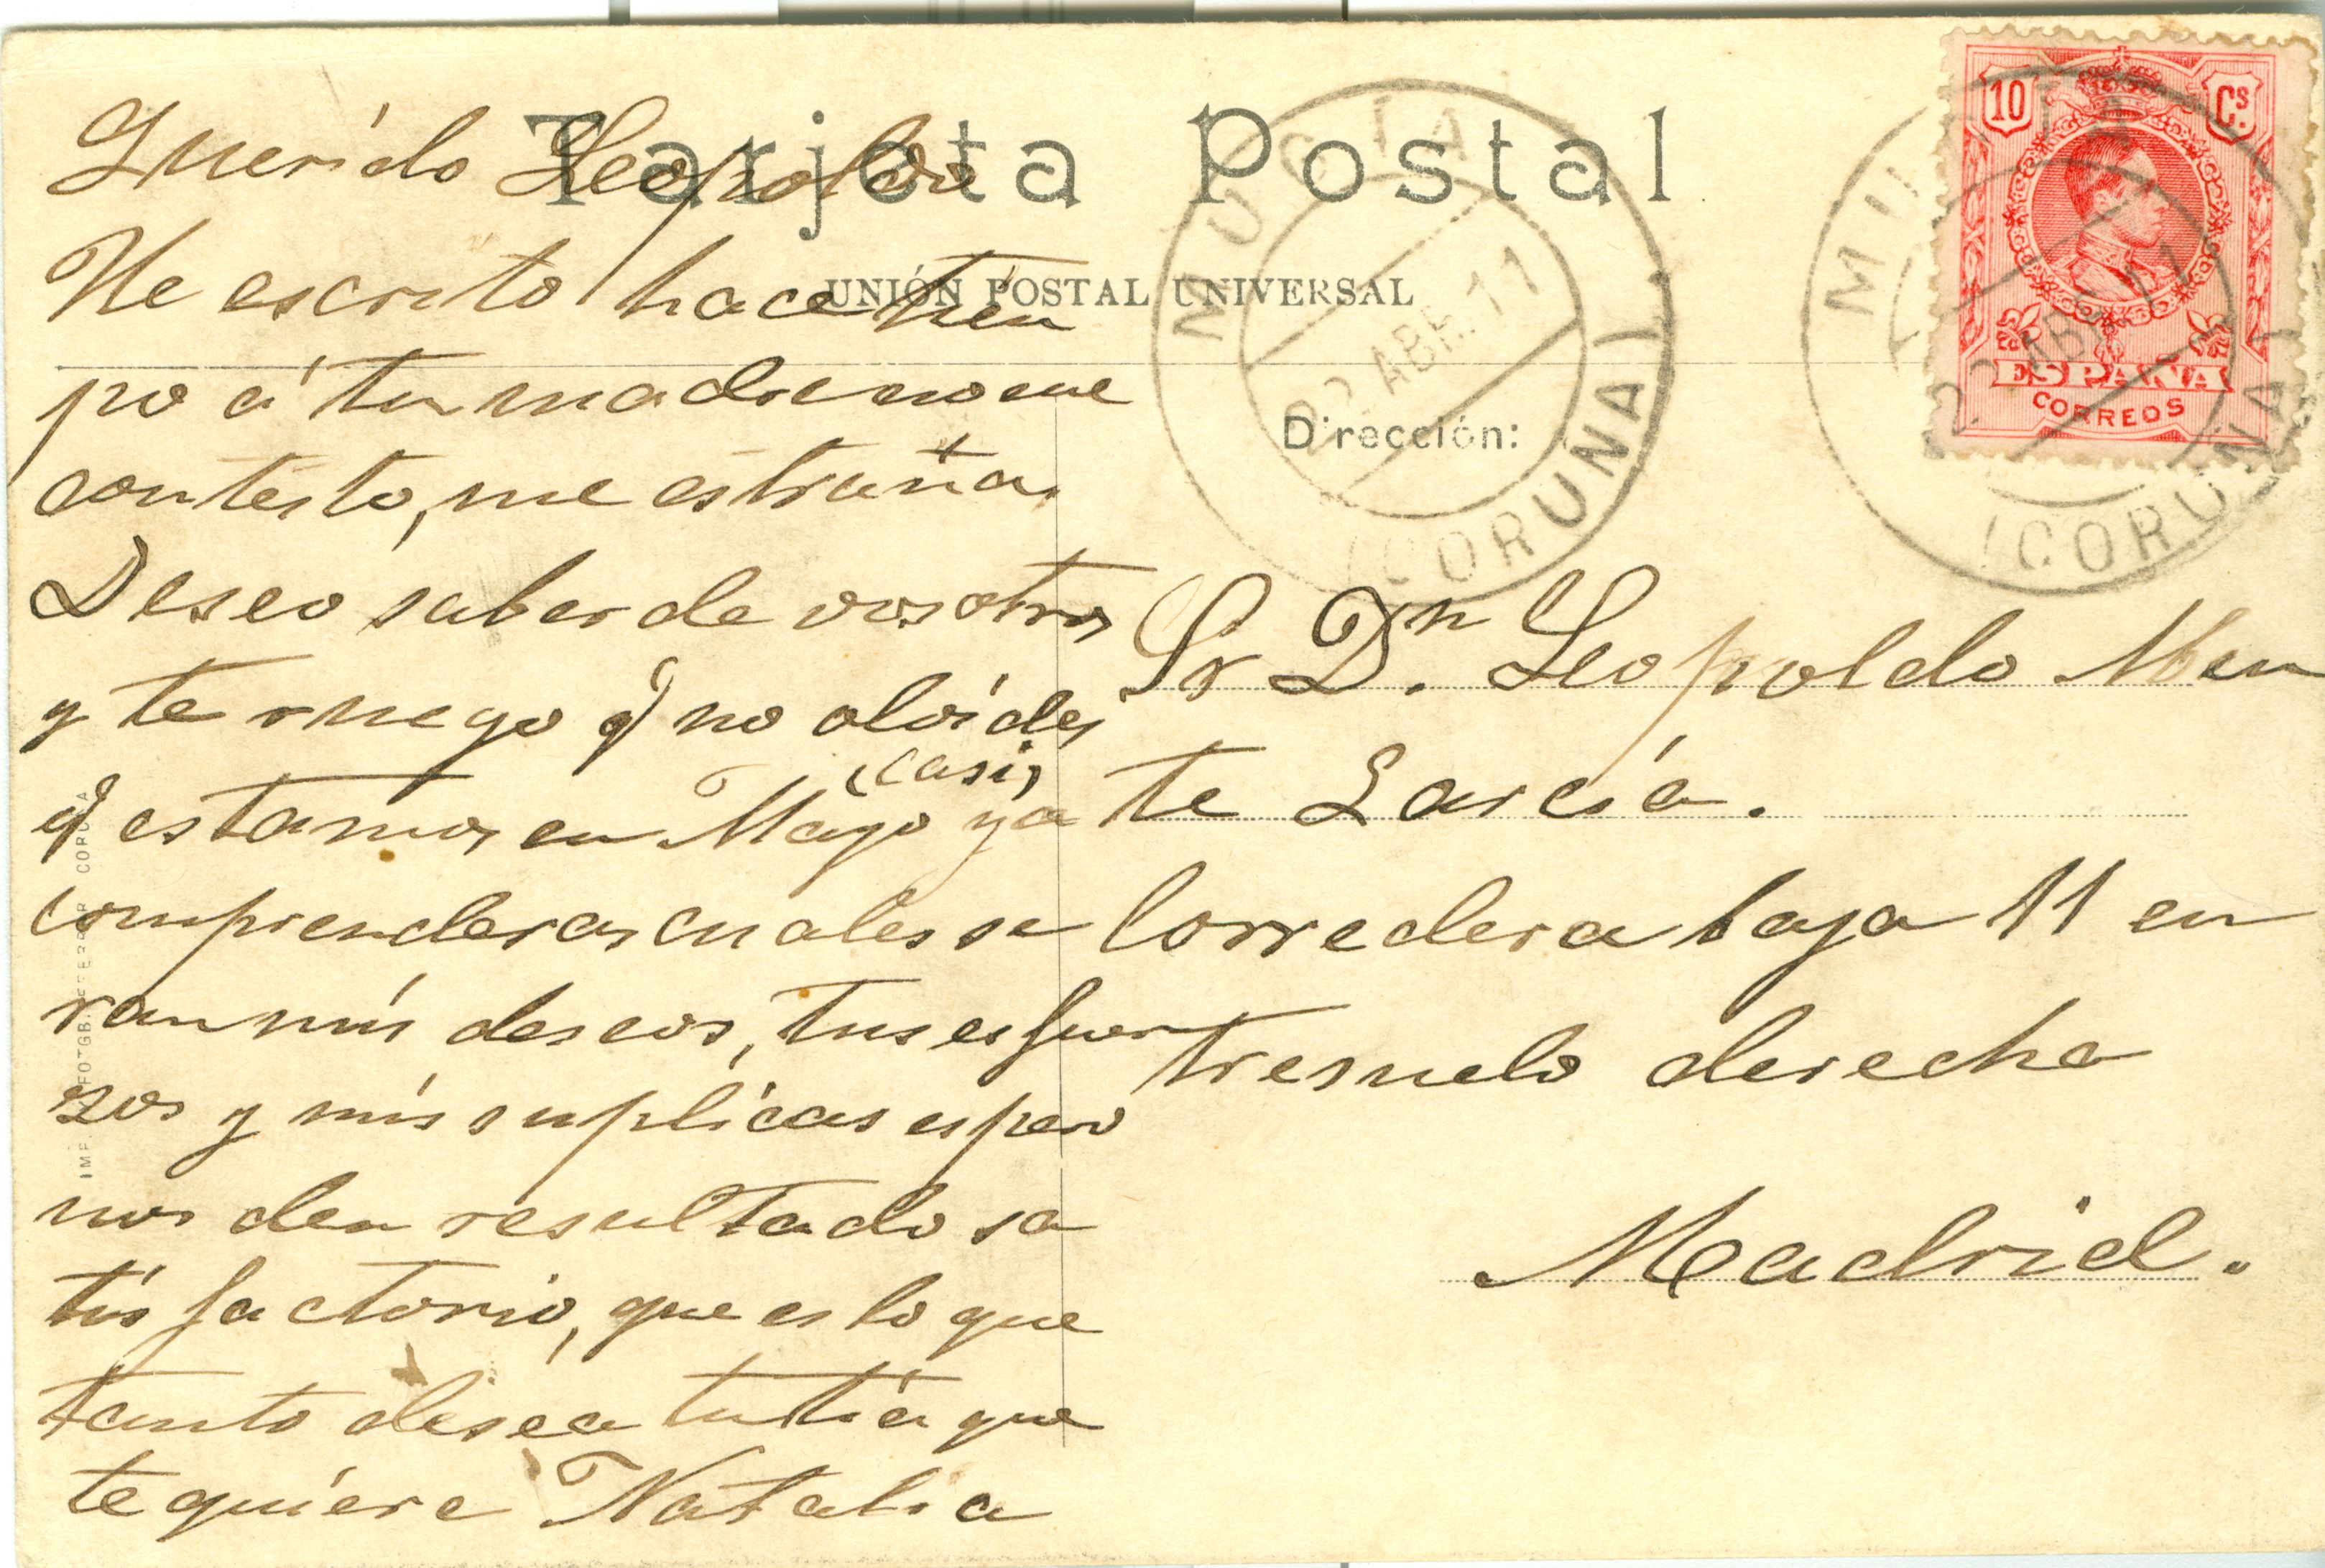 Tarjeta Postal
UNIÓN POSTAL UNIVERSAL
Dirección:
10 Cs.
ESPAÑA
CORREOS
MUGIA
22 ABR. 11
(CORUÑA)
MUGIA
22 ABR. 11
(CORUÑA)
Querido Leopoldo
He escrito hace tiem
po á tu madre no me
contesto, me estraña.
Deseo saber de vosotros
y te ruego q no olvides
(casi)
q estamos en Mayo ya
comprenderas cuales se
ran mis deseos, tus esfuer
zos y mis suplicas espero
nos den resultado sa
tisfactorio, que es lo que
tanto desea tu tia que
te quiere Natalia
Sr Dn. Leopoldo Men
te Garcia.
Corredera baja 11 en
tresuelo derecha
Madrid.
FERRER CORUÑA